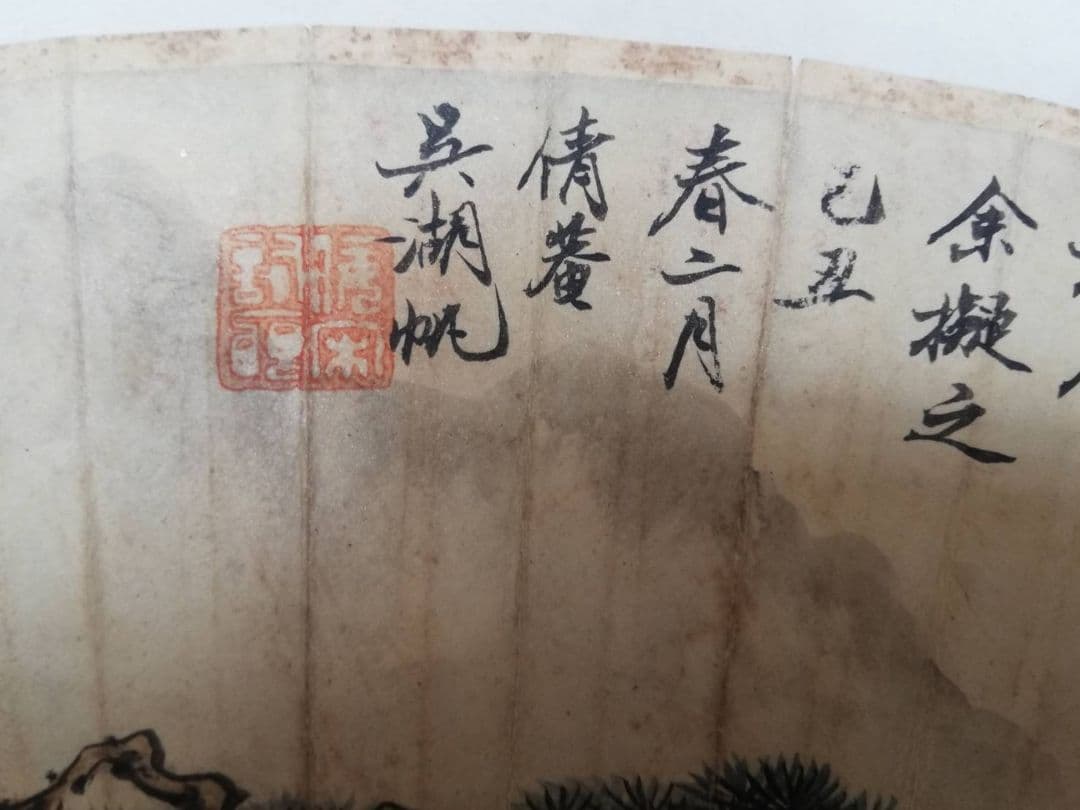 余擬之
己丑
春二月
倩菴
吳湖帆